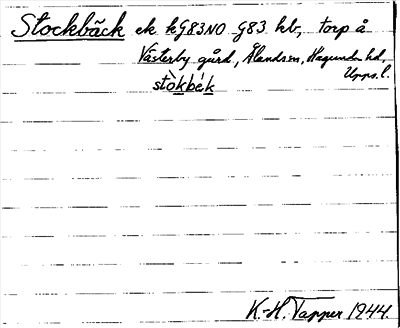 Stockbäck ek kG83NO G83 hb, torp å
Västerby gård, Ålandssn, Hagunda hd,
Upps.l.
stòkbék
K.-H. Tapper 1944.